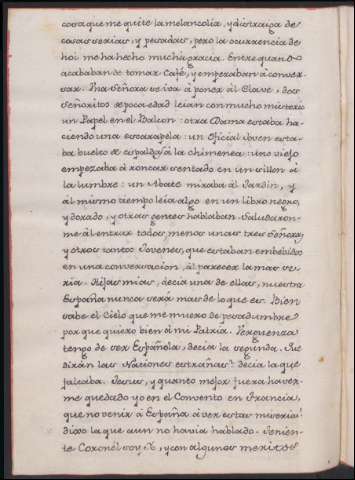 cosa que me quite la melancolia, y distraiga de
cosas serias, y pesadas, pero la ocurrencia de
hoi me ha hecho mucha gracia. Entre quando
acababan de tomar Café, y empezaban à conver
sar. Una Señora se iva à poner al Clave, dos
Señoritos de poca edad leian con mucho misterio
un Papel en el Balcon: otra Dama estaba ha-
ciendo una escarapela: un Oficial Joven esta-
ba buelto de espaldas à la chimenea: uno viejo
empezaba à roncar sentado en un sillon à
la lumbre: un Abate miraba al Jardin, y
al mismo tiempo leia algo en un libro negro,
y dorado, y otras gentes hablaban. Saludaron-
me al entrar todos, menos unas tres Señoras,
y otros tantos Jovenes, que estaban embebidos
en una conversacion, al parecer la mas se-
ria. Hijas mias, decia una de ellas, nuestra
España nunca serà mas de lo que es. Bien
sabe el Cielo que me muero de pesadumbre,
por que quiero bien à mi Patria. Verguenza
tengo de ser Española, decia la segunda. Que
diràn las Naciones estrañas! decia la que
faltaba. Jesus, y quanto mejor fuera haver-
me quedado yo en el Convento en Francia,
que no venir à España à ver estas miserias!
Dixo la que aun no havia hablado. Tenien-
te Coronel soy Yo, y con algunos meritos